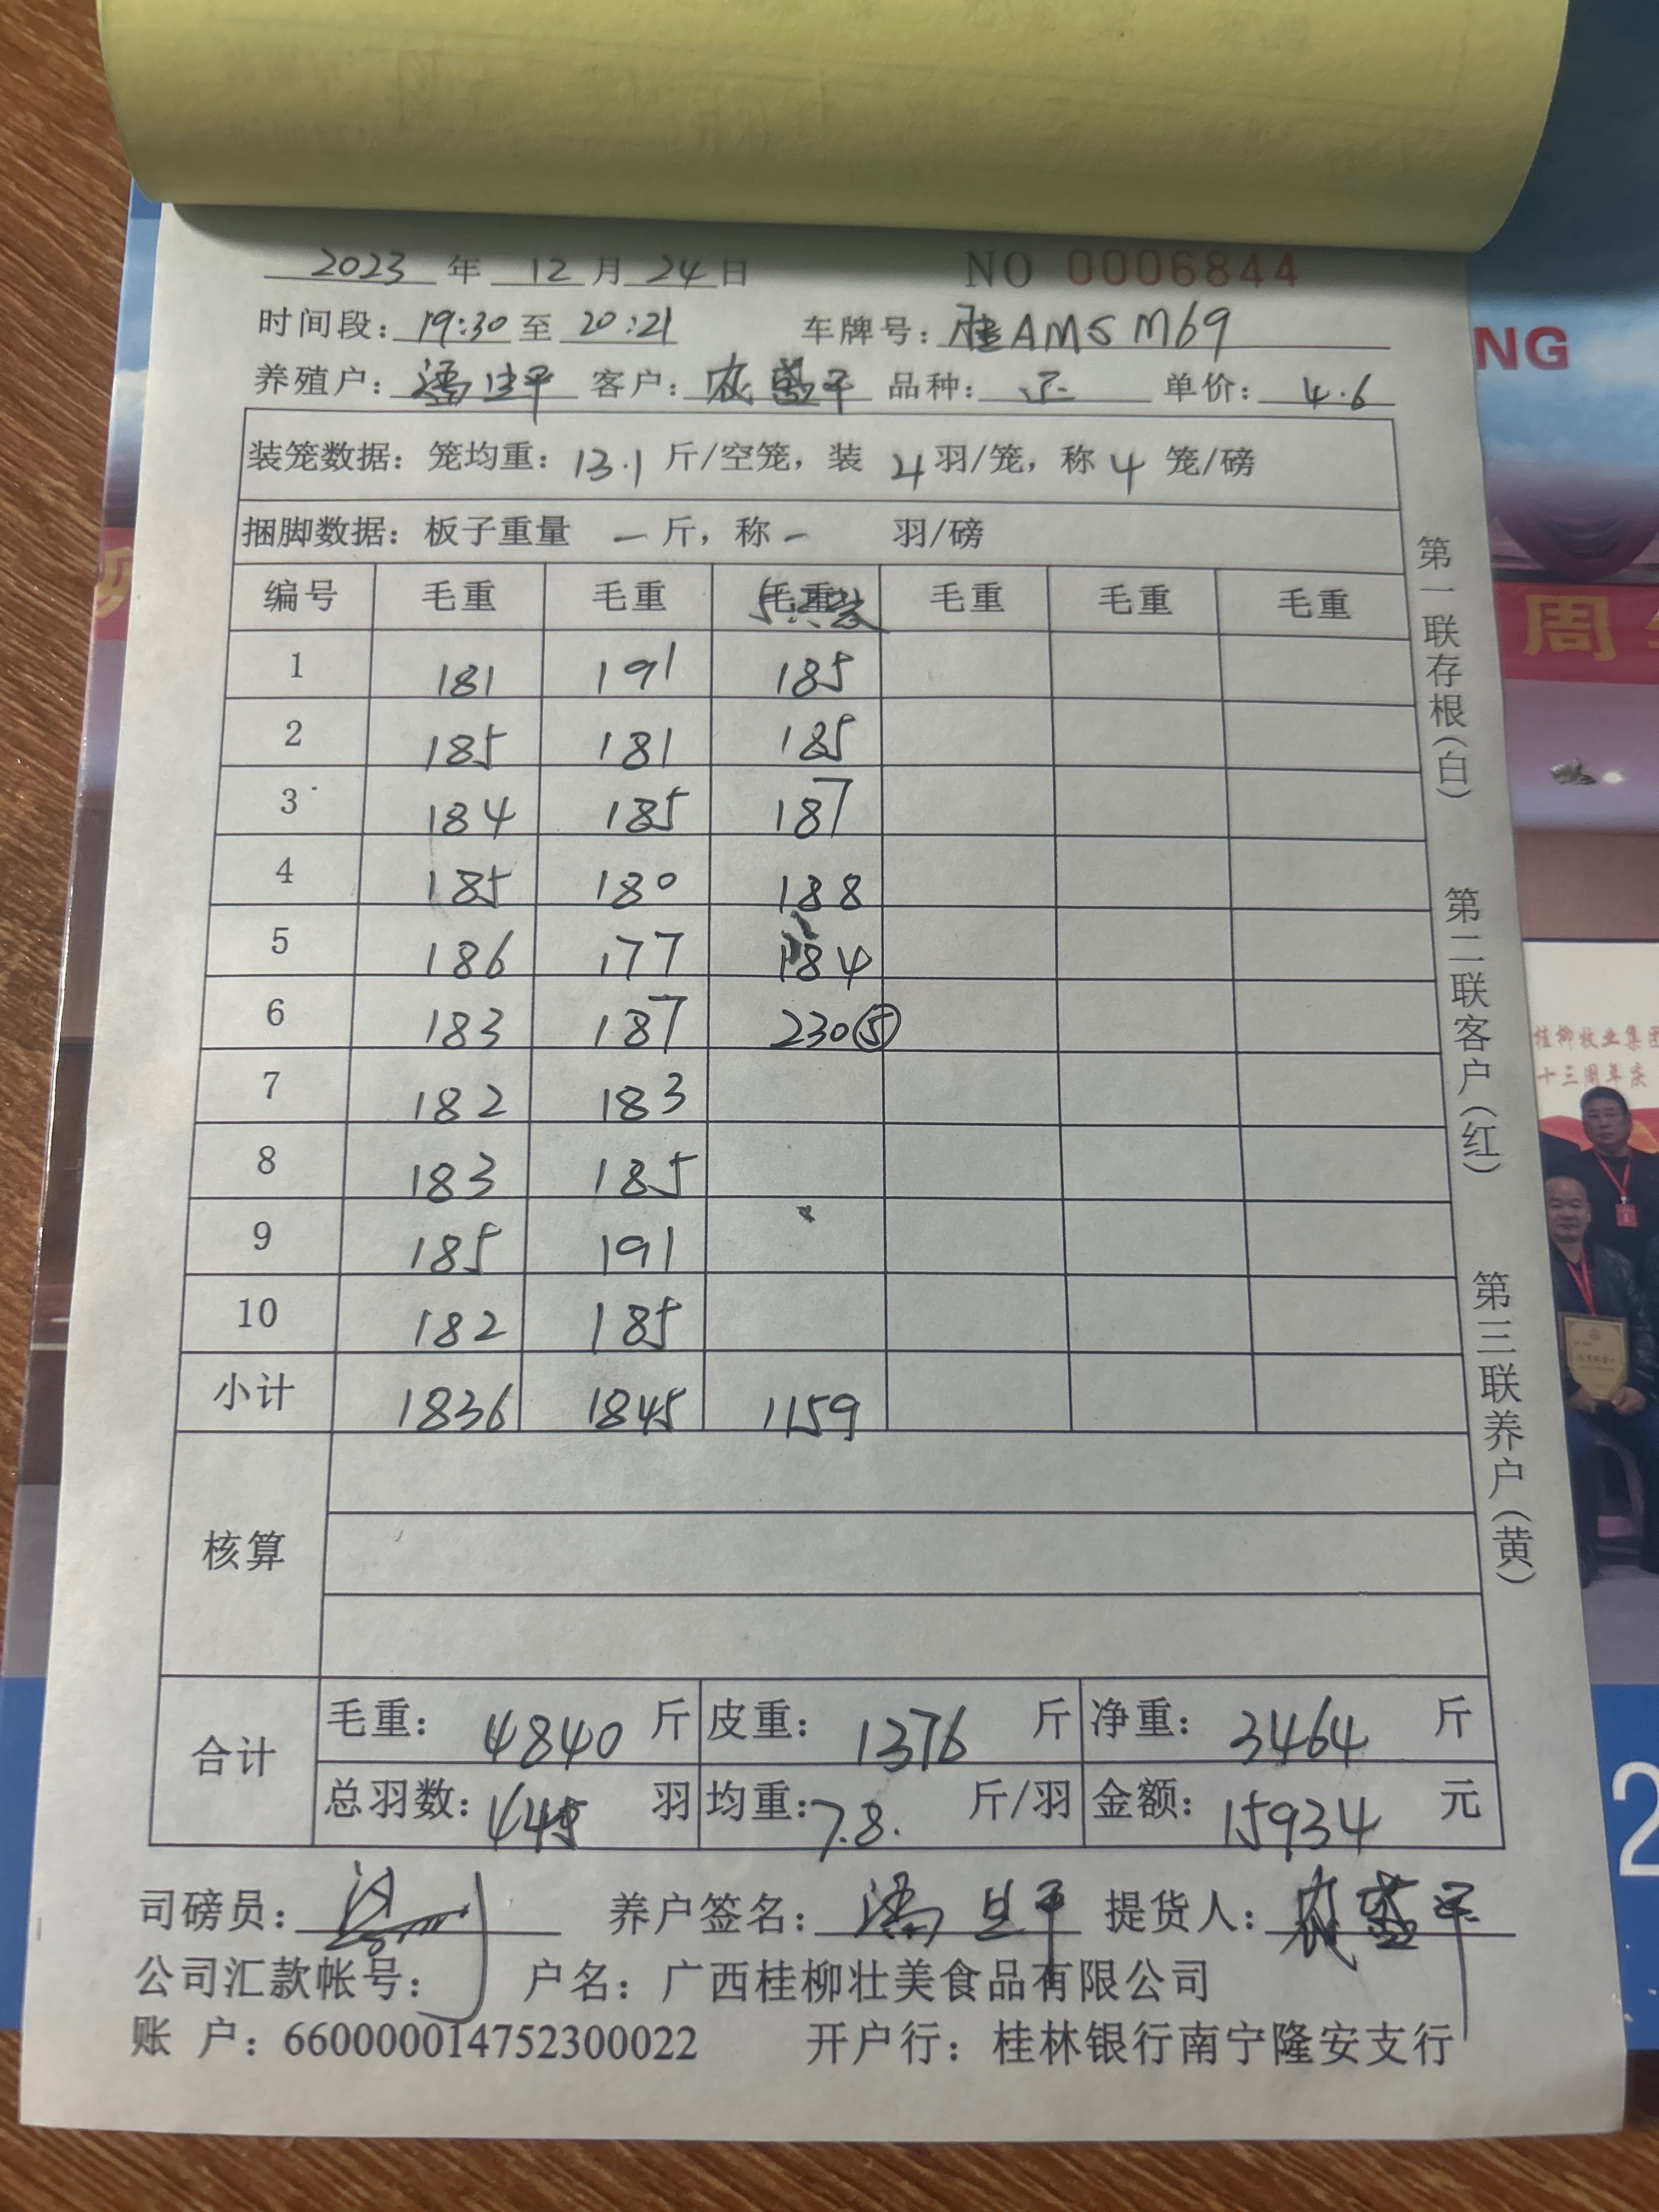 2023 年 12 月 24 日 NO 0006844
时间段: 19:30 至 20:21 车牌号: 桂AM5M69
养殖户: 潘 平 客户: 农 平 品种: 单价: 4.6
装笼数据: 笼均重: 13.1 斤/空笼, 装 4 羽/笼, 称 4 笼/磅
捆脚数据: 板子重量 一 斤, 称 一 羽/磅
编号 毛重 毛重 毛重 毛重 毛重 毛重
1 181 191 185
2 185 181 185
3 184 185 187
4 185 180 188
5 186 177 184
6 183 187 230⑤
7 182 183
8 183 185
9 185 191
10 182 185
小计 1836 1845 1159
核算
合计
毛重: 4840 斤 皮重: 1376 斤 净重: 3464 斤
总羽数: 羽 均重: 7.8. 斤/羽 金额: 15934 元
司磅员: 养户签名: 潘 平 提货人: 农 平
公司汇款帐号: 户名: 广西桂柳壮美食品有限公司
账 户: 660000014752300022 开户行: 桂林银行南宁隆安支行
第一联存根(白)
第二联客户(红)
第三联养户(黄)
NG
周
桂柳牧业集团
十三周年庆
2